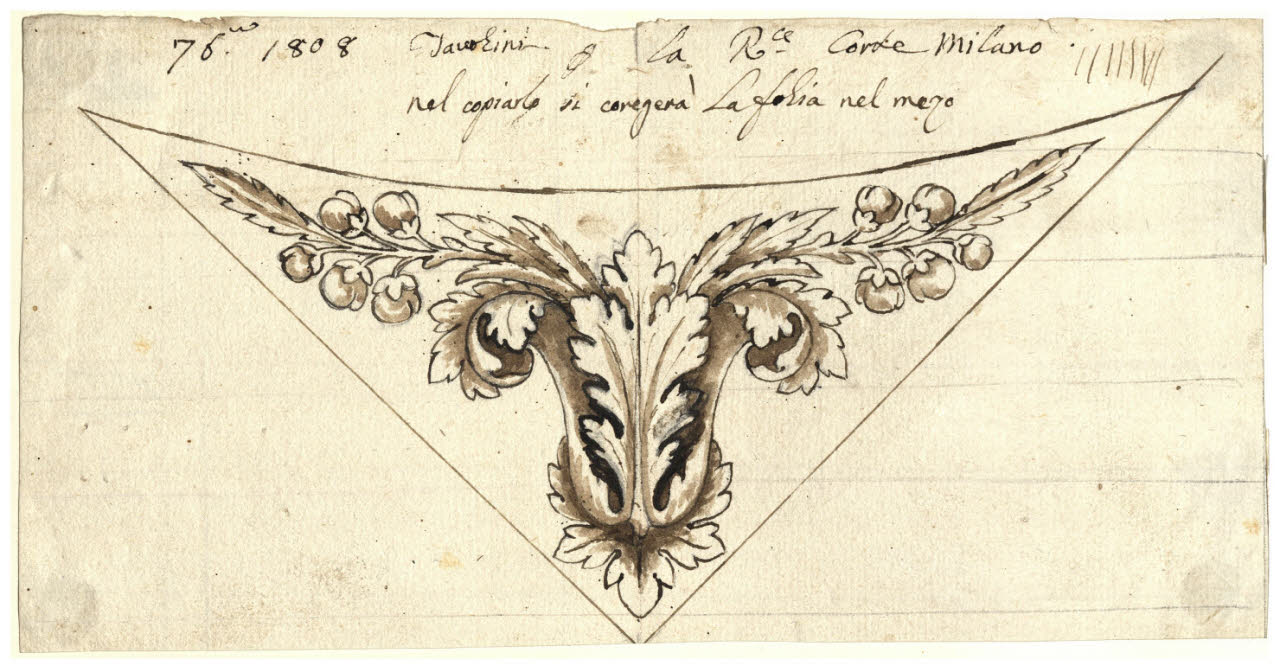 76. 1808 Tavolini p la R.ce Corte Milano
nel copiarlo si coregerà La folia nel mezo